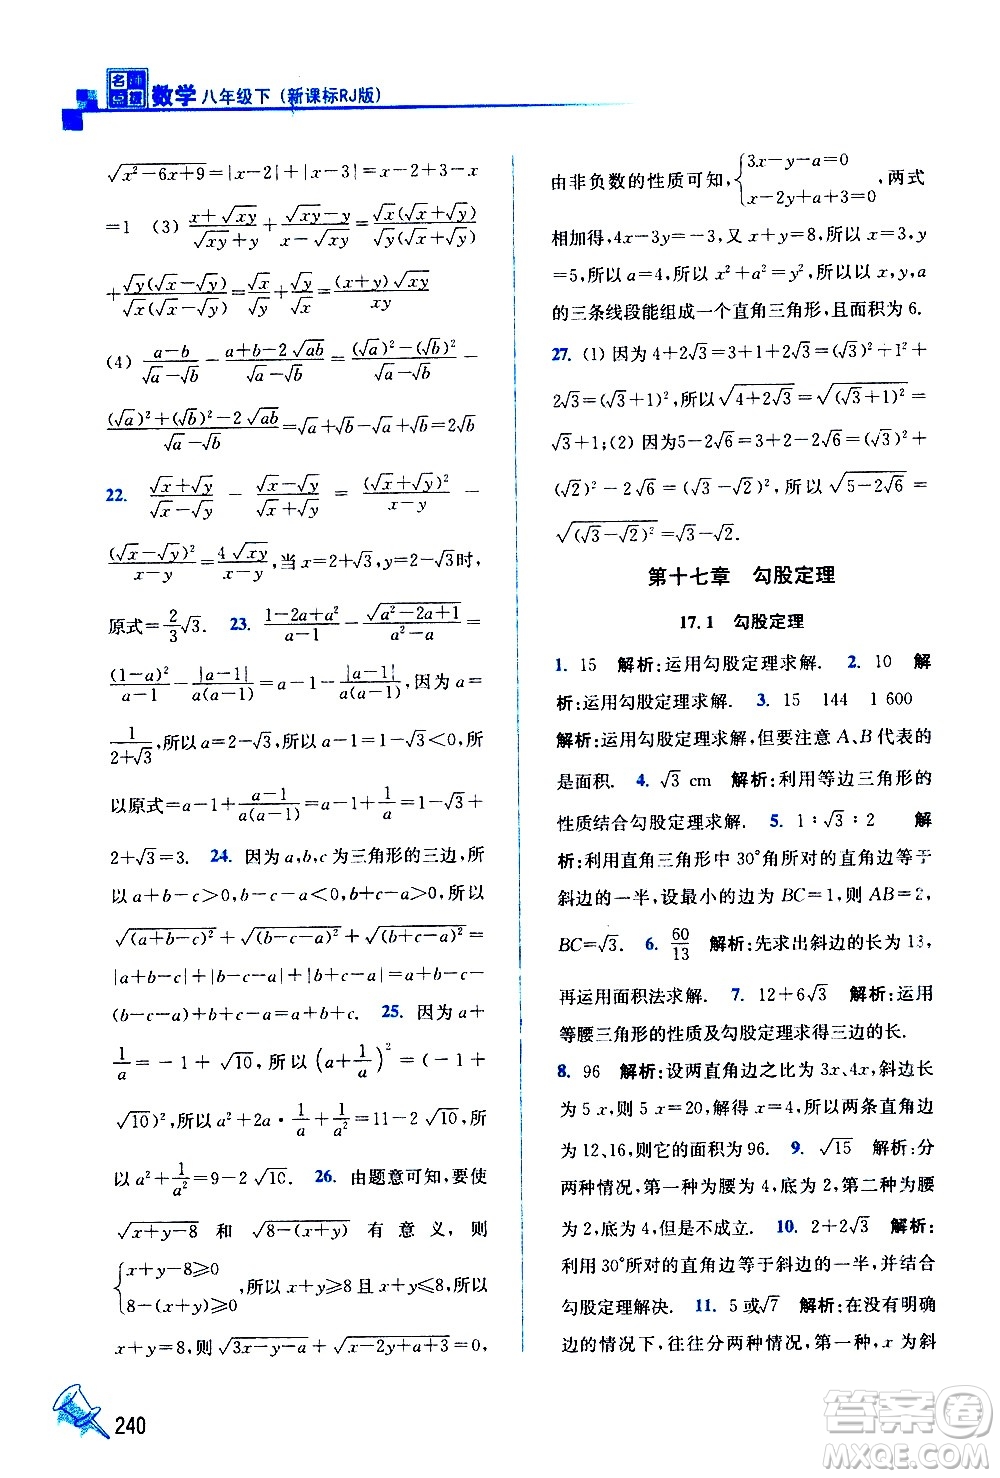 名师点拨 数学 八年级下(新课标RJ版)
√(x²-6x+9)=|x-2|+|x-3|=x-2+3-x
=1 (3) (x+√xy)/(√xy+y)+(√xy-y)/(x-√xy)=√x(√x+√y)/√y(√x+√y)
+√y(√x-√y)/√x(√x-√y)=√x/√y+√y/√x=(x+y)√xy/xy
(4) (a-b)/(√a-√b)-(a+b-2√ab)/(√a-√b)=((√a)²-(√b)²)/(√a-√b)-
((√a)²+(√b)²-2√ab)/(√a-√b)=√a+√b-√a+√b=2√b
22. (√x+√y)/(√x-√y)-(√x-√y)/(√x+√y)=(√x+√y)²/(x-y)-
(√x-√y)²/(x-y)=4√xy/(x-y),当 x=2+√3,y=2-√3时,
原式=2/3√3. 23. (1-2a+a²)/(a-1)-√(a²-2a+1)/(a²-a)=
(1-a)²/(a-1)-|a-1|/a(a-1)=a-1-|a-1|/a(a-1),因为a=
1/(2+√3),所以a=2-√3,所以a-1=1-√3<0,所
以原式=a-1+(a-1)/a(a-1)=a-1+1/a=1-√3+
2+√3=3. 24. 因为a,b,c为三角形的三边,所
以a+b-c>0,b-c-a<0,b+c-a>0,所以
√(a+b-c)²-√(b-c-a)²+√(b+c-a)²=
|a+b-c|-|b-c-a|+|b+c-a|=a+b-c+
(b-c-a)+(b+c-a)=3b-c-a. 25. 因为a+
1/a=-1+√10,所以(a+1/a)²=(-1+
√10)²,所以a²+2a·1/a+1/a²=11-2√10,所
以a²+1/a²=9-2√10. 26. 由题意可知,要使
√(x+y-8) 和 √(8-(x+y)) 有意义,则
{x+y-8≥0 8-(x+y)≥0,所以x+y≥8且x+y≤8,所以
x+y=8,所以√(3x-y-a)+√(x-2y+a+3)=0,
由非负数的性质可知,{3x-y-a=0 x-2y+a+3=0,两式
相加得,4x-3y=-3,又x+y=8,所以x=3,y
=5,所以a=4,所以x²+a²=y²,所以以x,y,a
的三条线段能组成一个直角三角形,且面积为6.
27. (1) 因为4+2√3=3+1+2√3=(√3)²+1²+
2√3=(√3+1)²,所以√(4+2√3)=√(√3+1)²=
√3+1;(2) 因为5-2√6=3+2-2√6=(√3)²+
(√2)²-2√6=(√3-√2)²,所以√(5-2√6)=
√(√3-√2)²=√3-√2.
第十七章 勾股定理
17.1 勾股定理
1. 15 解析:运用勾股定理求解. 2. 10 解
析:运用勾股定理求解. 3. 15 144 1 600
解析:运用勾股定理求解,但要注意A、B代表的
是面积. 4. √3 cm 解析:利用等边三角形的
性质结合勾股定理求解. 5. 1∶√3∶2 解
析:利用直角三角形中30°角所对的直角边等于
斜边的一半,设最小的边为BC=1,则AB=2,
BC=√3. 6. 60/13 解析:先求出斜边的长为13,
再运用面积法求解. 7. 12+6√3 解析:运用
等腰三角形的性质及勾股定理求得三边的长.
8. 96 解析:设两直角边之比为3x、4x,斜边长
为5x,则5x=20,解得x=4,所以两条直角边
为12、16,则它的面积为96. 9. √15 解析:分
两种情况,第一种为腰为4,底为2,第二种为腰
为2,底为4,但是不成立. 10. 2+2√3 解析:
利用30°所对的直角边等于斜边的一半,并结合
勾股定理解决. 11. 5或√7 解析:在没有明确
边的情况下,往往分两种情况,第一种是x为斜
240
答案圈
MXQE.COM